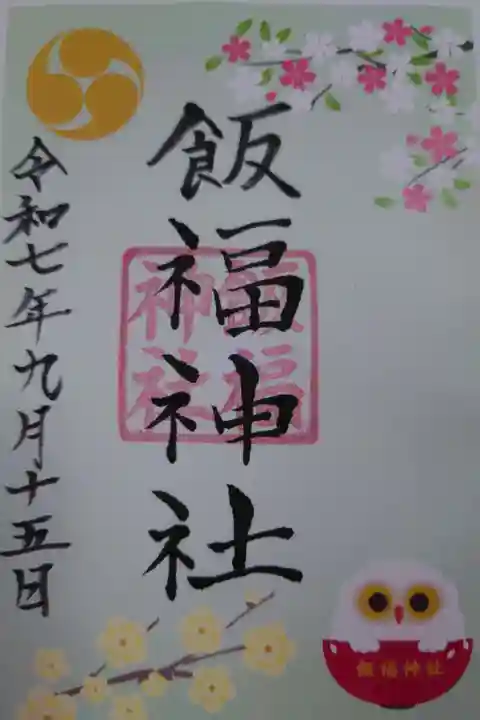 飯福神社
飯福
神社
令和七年九月十五日
飯福神社